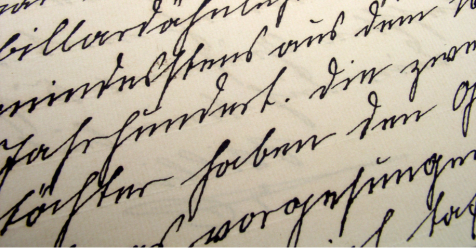 billardähnli
mindestens aus dem
Jahrhundert. Die zwe
töchter haben den g
vorgesungen